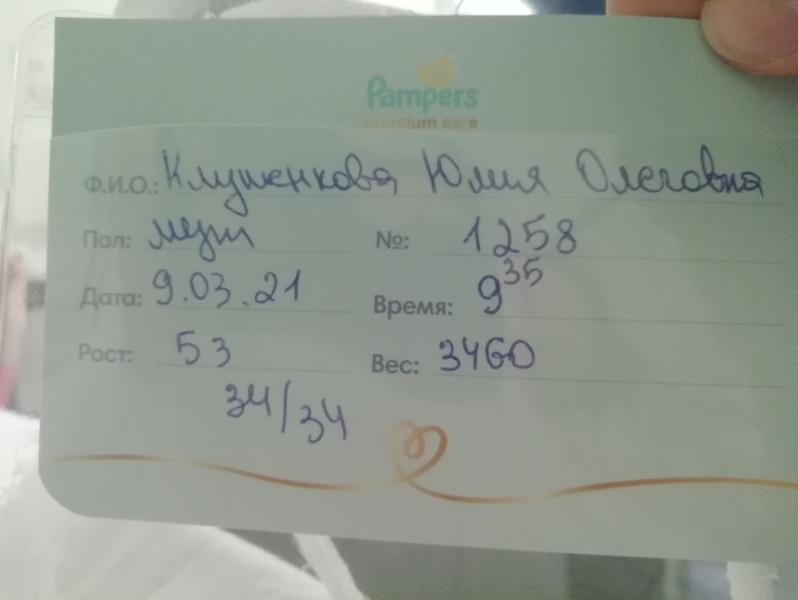 Pampers
premium care
Ф.И.О.: Клушенкова Юлия Олеговна
Пол: муж №: 1258
Дата: 9.03.21 Время: 9 35
Рост: 53 Вес: 3460
34/34